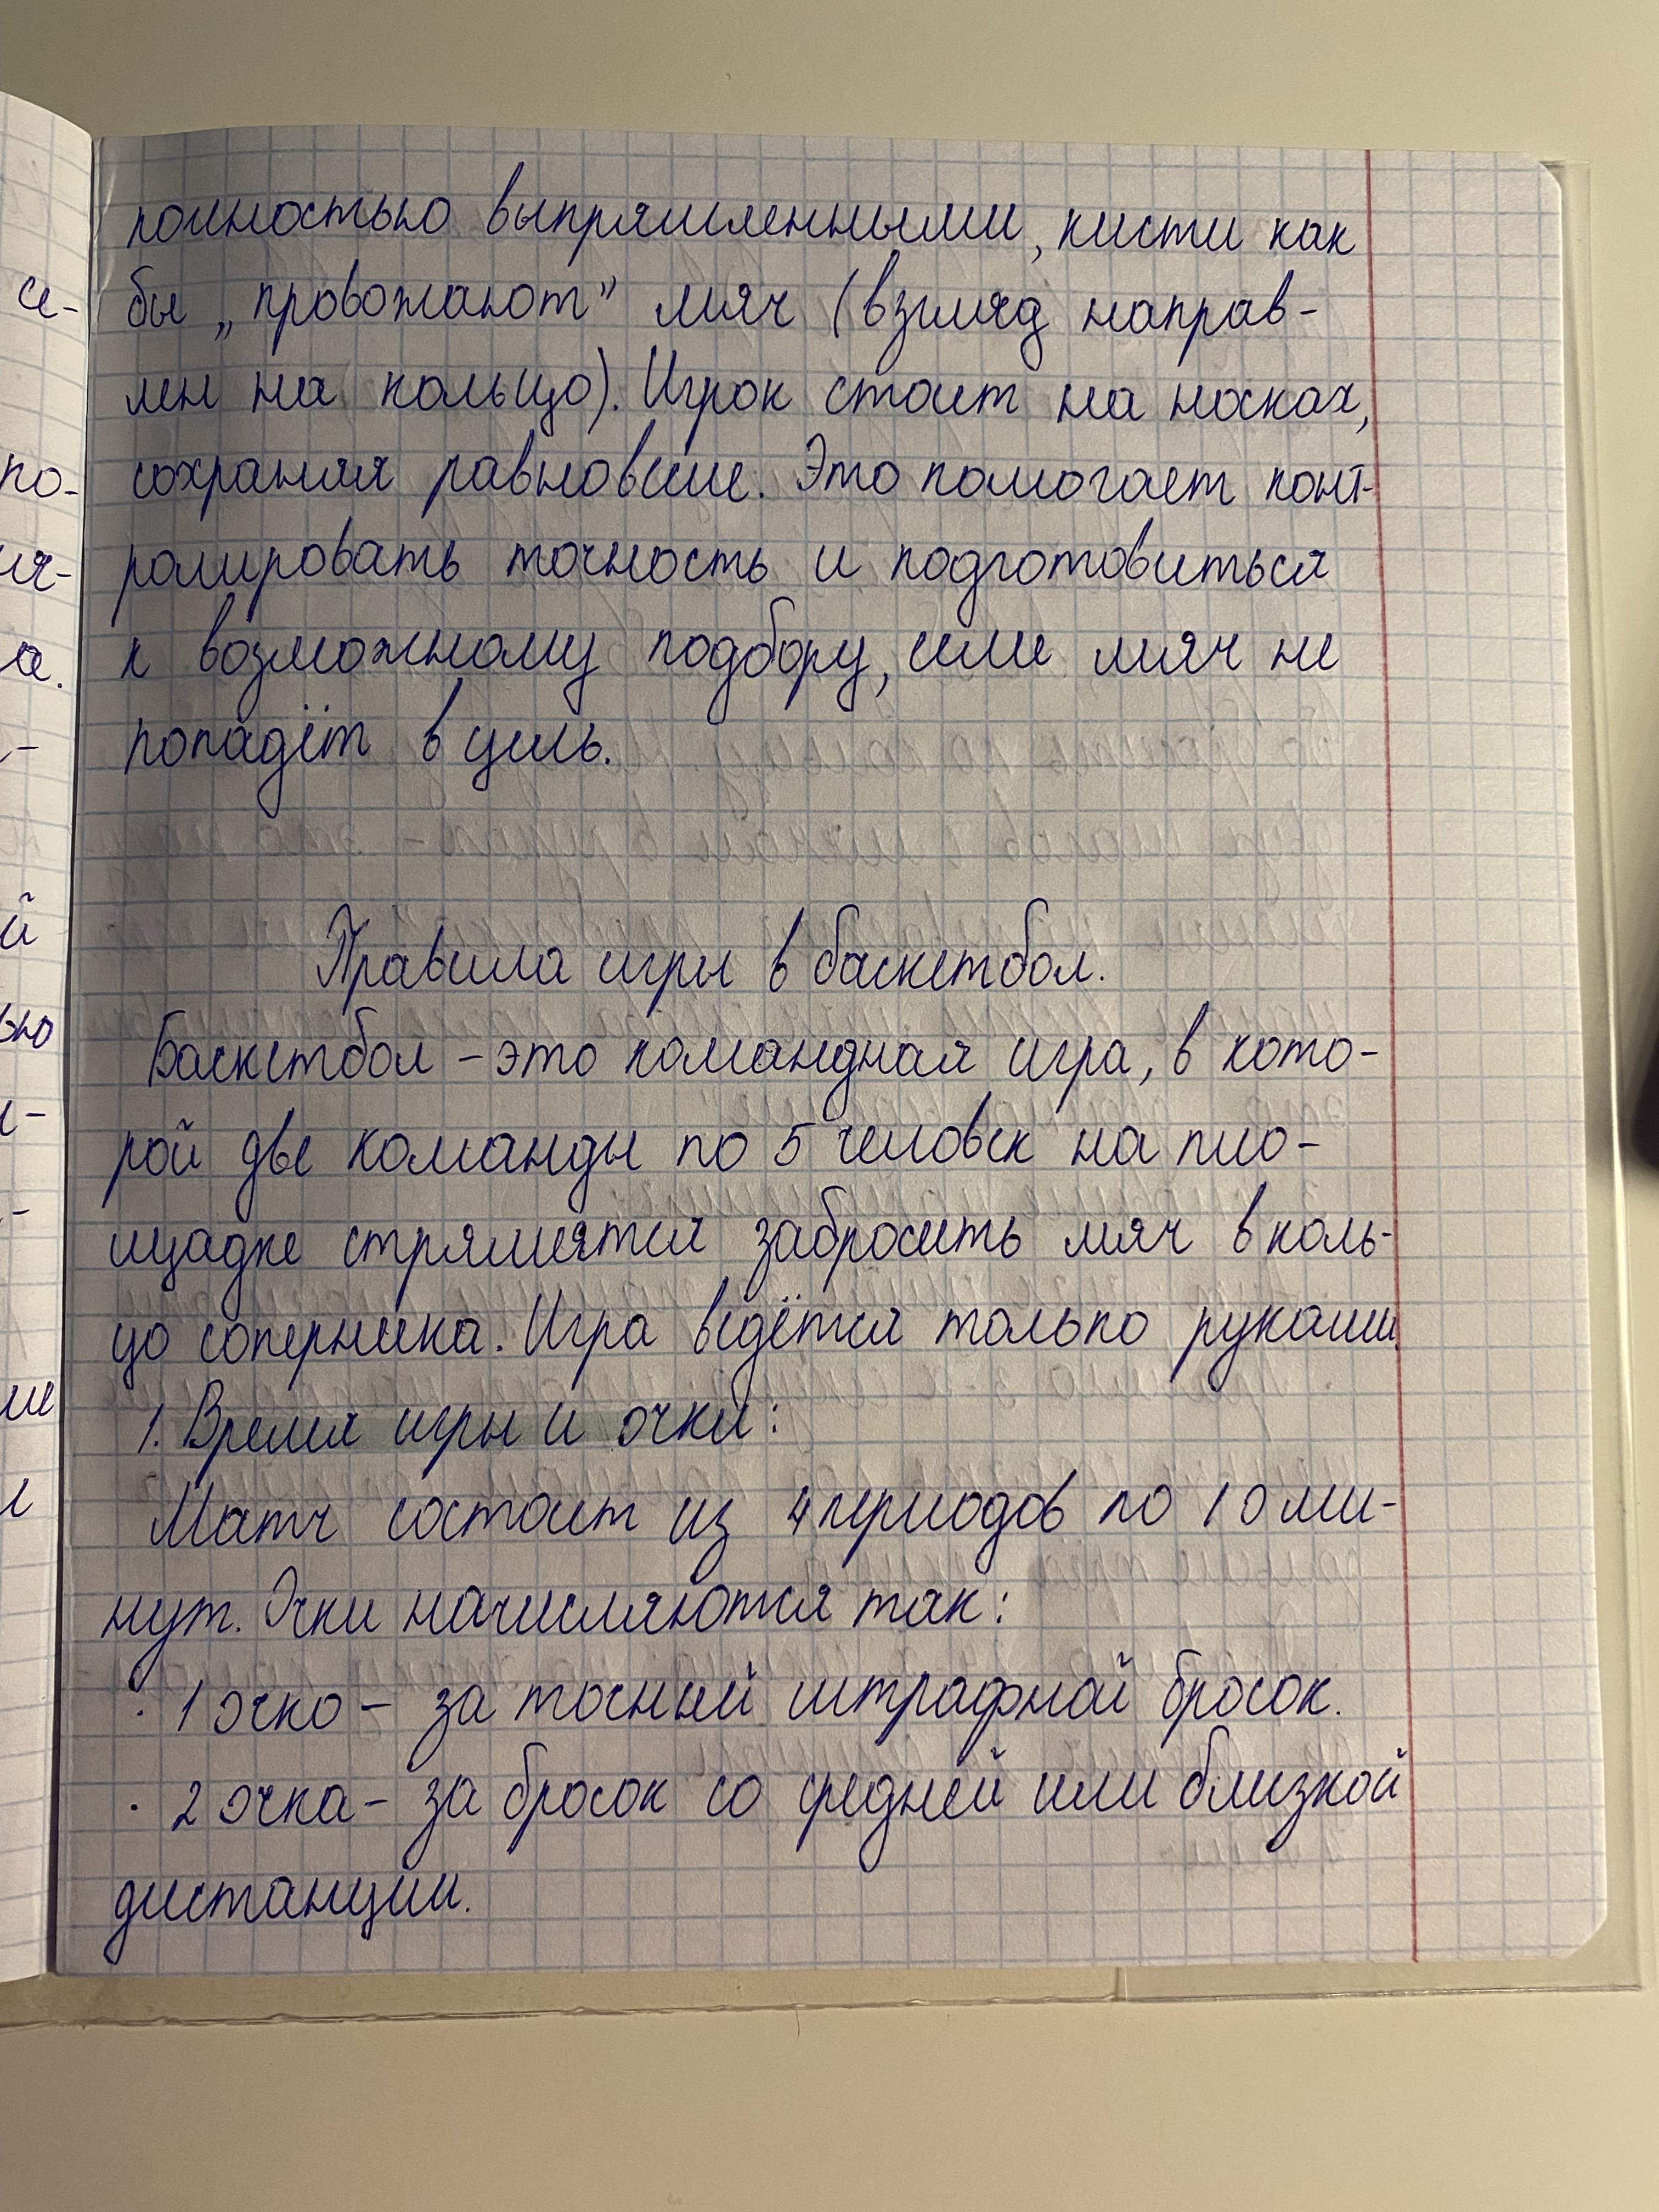 полностью выпрямленными, кисти как
бы „провожают” мяч (взгляд направ-
лен на кольцо). Игрок стоит на носках,
сохраняя равновесие. Это помогает конт-
ролировать точность и подготовиться
к возможному подбору, если мяч не
попадёт в цель.
Правила игры в баскетбол.
Баскетбол - это командная игра, в кото-
рой две команды по 5 человек на пло-
щадке стремятся забросить мяч в коль-
цо соперника. Игра ведётся только руками.
1. Время игры и очки:
Матч состоит из 4 периодов по 10 ми-
нут. Очки начисляются так:
· 1 очко - за точный штрафной бросок.
· 2 очка - за бросок со средней или близкой
дистанции.